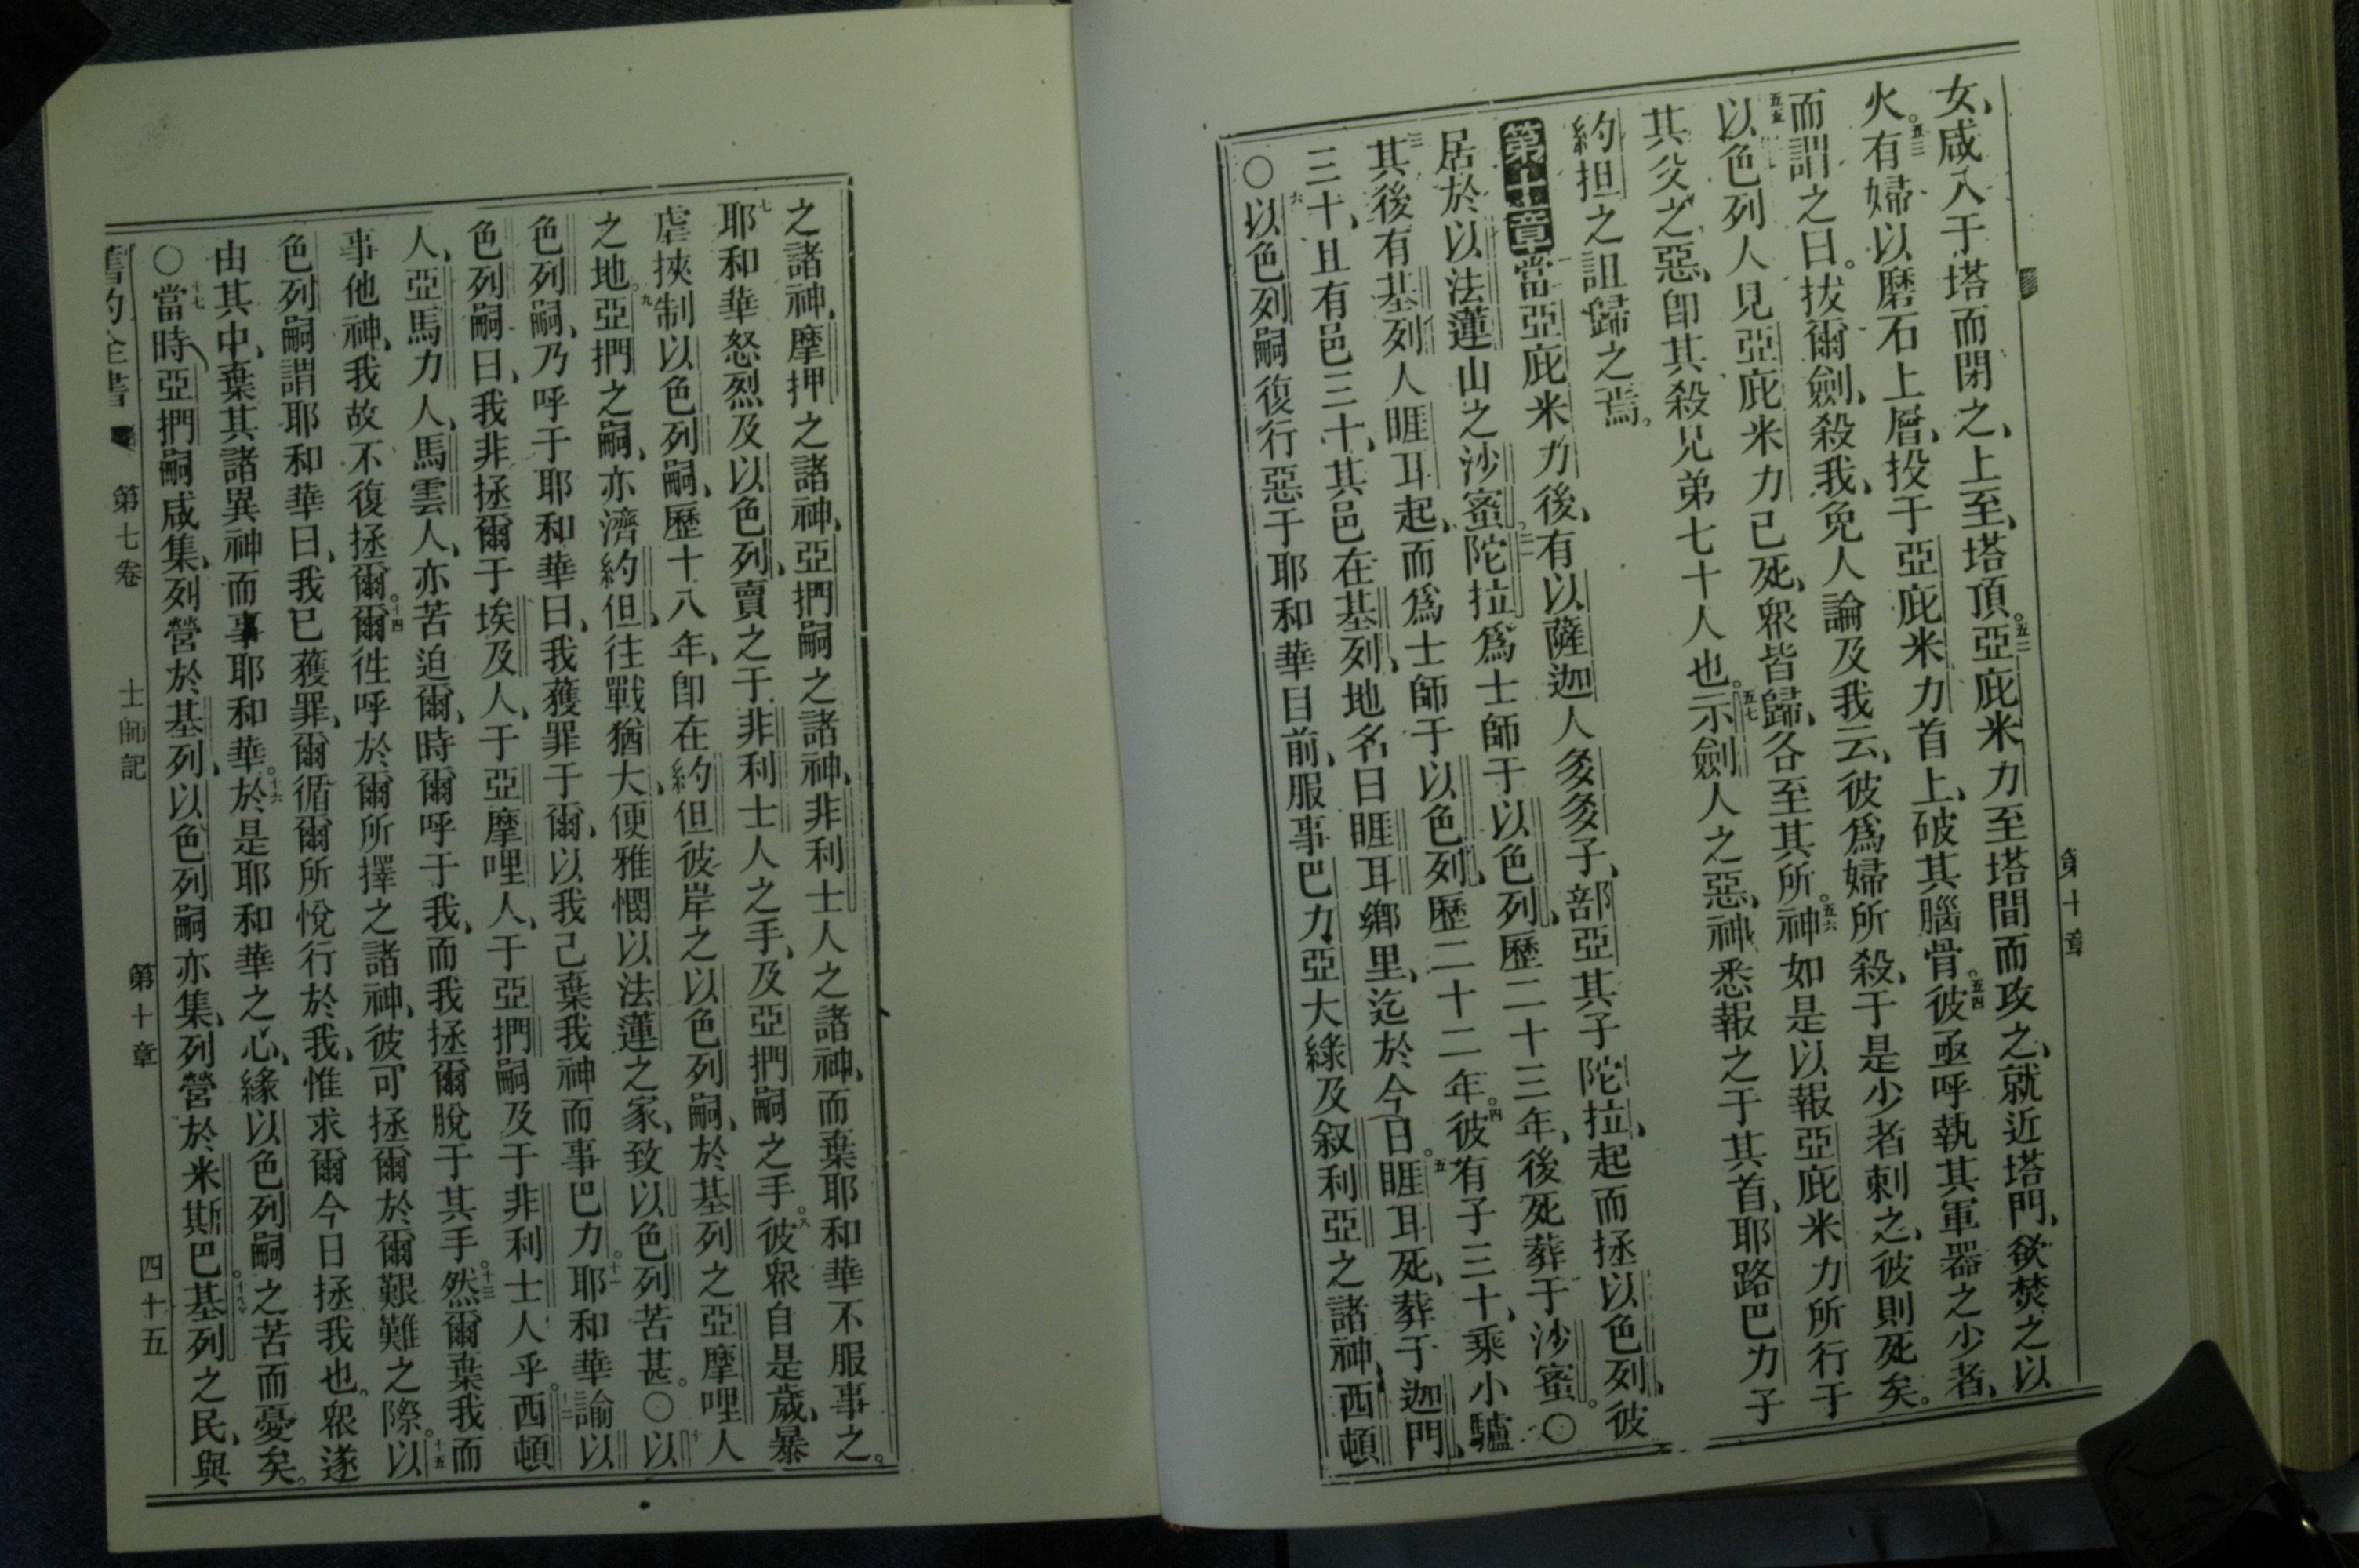 女、咸入于塔而閉之、上至、塔頂。五二亞庇米力至塔間而攻之、就近塔門、欲焚之以
火。五三有婦以磨石上層、投于亞庇米力首上、破其腦骨。五四彼亟呼執其軍器之少者、
而謂之曰。拔爾劍、殺我、免人論及我云、彼爲婦所殺、于是少者刺之、彼則死矣。
五五以色列人見亞庇米力已死、眾皆歸、各至其所。五六神如是以報亞庇米力所行于
其父之惡、卽其殺兄弟七十人也。五七示劍人之惡、神悉報之于其首、耶路巴力子
約担之詛歸之焉。
第十章當亞庇米力後、有以薩迦人㕛㕛子、部亞其子陀拉、起而拯以色列、彼
居於以法蓮山之沙蜜。二陀拉爲士師于以色列、歷二十三年、後死葬于沙蜜。〇
三其後有基列人睚耳起、而爲士師于以色列、歷二十二年。四彼有子三十、乘小驢
三十、且有邑三十、其邑在基列、地名曰睚耳鄉里、迄於今日。五睚耳死、葬于迦門、
〇六以色列嗣復行惡于耶和華目前、服事巴力亞大綠及叙利亞之諸神、西頓
第十章
之諸神、摩押之諸神、亞捫嗣之諸神、非利士人之諸神、而棄耶和華不服事之。
七耶和華怒烈及以色列、賣之于非利士人之手、及亞捫嗣之手。八彼眾自是歲、暴
虐挾制以色列嗣、歷十八年、卽在約但彼岸之以色列嗣、於基列之亞摩哩人
之地。九亞捫之嗣、亦濟約但、往戰猶大、便雅憫以法蓮之家、致以色列苦甚。〇十以
色列嗣、乃呼于耶和華曰、我獲罪于爾、以我己棄我神而事巴力。十一耶和華諭以
色列嗣曰、我非拯爾于埃及人、于亞摩哩人、于亞捫嗣及于非利士人乎。十二西頓
人、亞馬力人、馬雲人、亦苦迫爾、時爾呼于我、而我拯爾脫于其手。十三然爾棄我而
事他神、我故不復拯爾。十四爾徃呼於爾所擇之諸神、彼可拯爾於爾艱難之際。十五以
色列嗣謂耶和華曰、我已獲罪、爾循爾所悅行於我、惟求爾今日拯我也。眾遂
由其中、棄其諸異神而事耶和華。十六於是耶和華之心、緣以色列嗣之苦而憂矣。
〇十七當時亞捫嗣咸集、列營於基列、以色列嗣亦集、列營於米斯巴。十八基列之民、與
舊約全書 第七卷 士師記 第十章 四十五